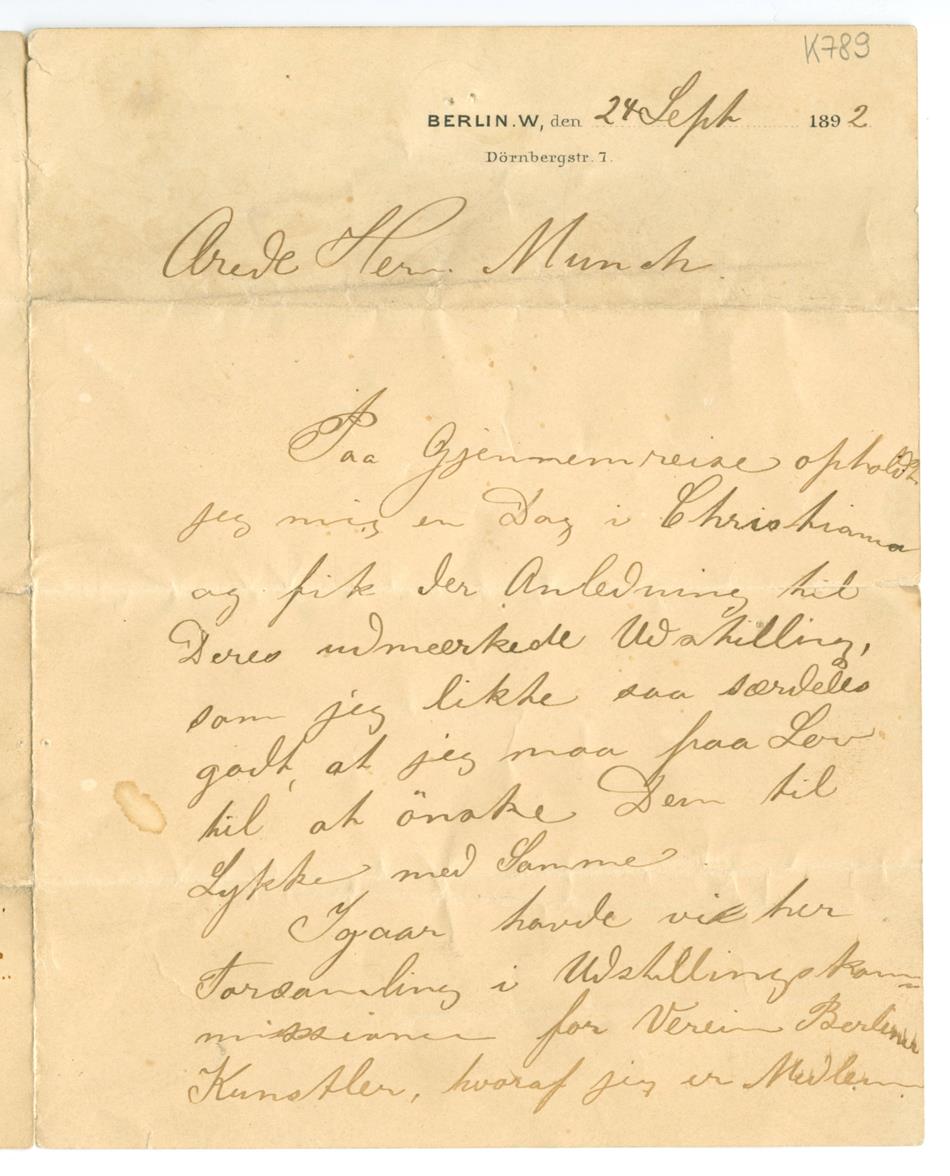 K789
BERLIN.W, den 24 Sept 1892
Dörnbergstr. 7.
Ærede Herr. Munch
Paa Gjennemreise opholdt
jeg mig en Dag i Christiania
og fik der Anledning til
Deres udmærkede Udstilling,
som jeg likte saa særdeles
godt, at jeg maa faa Lov
til at önske Dem til
Lykke med Samme
Igaar havde vi her
Forsamling i Udstillingskom-
missionen for Verein Berliner
Kunstler, hvoraf jeg er Medlem